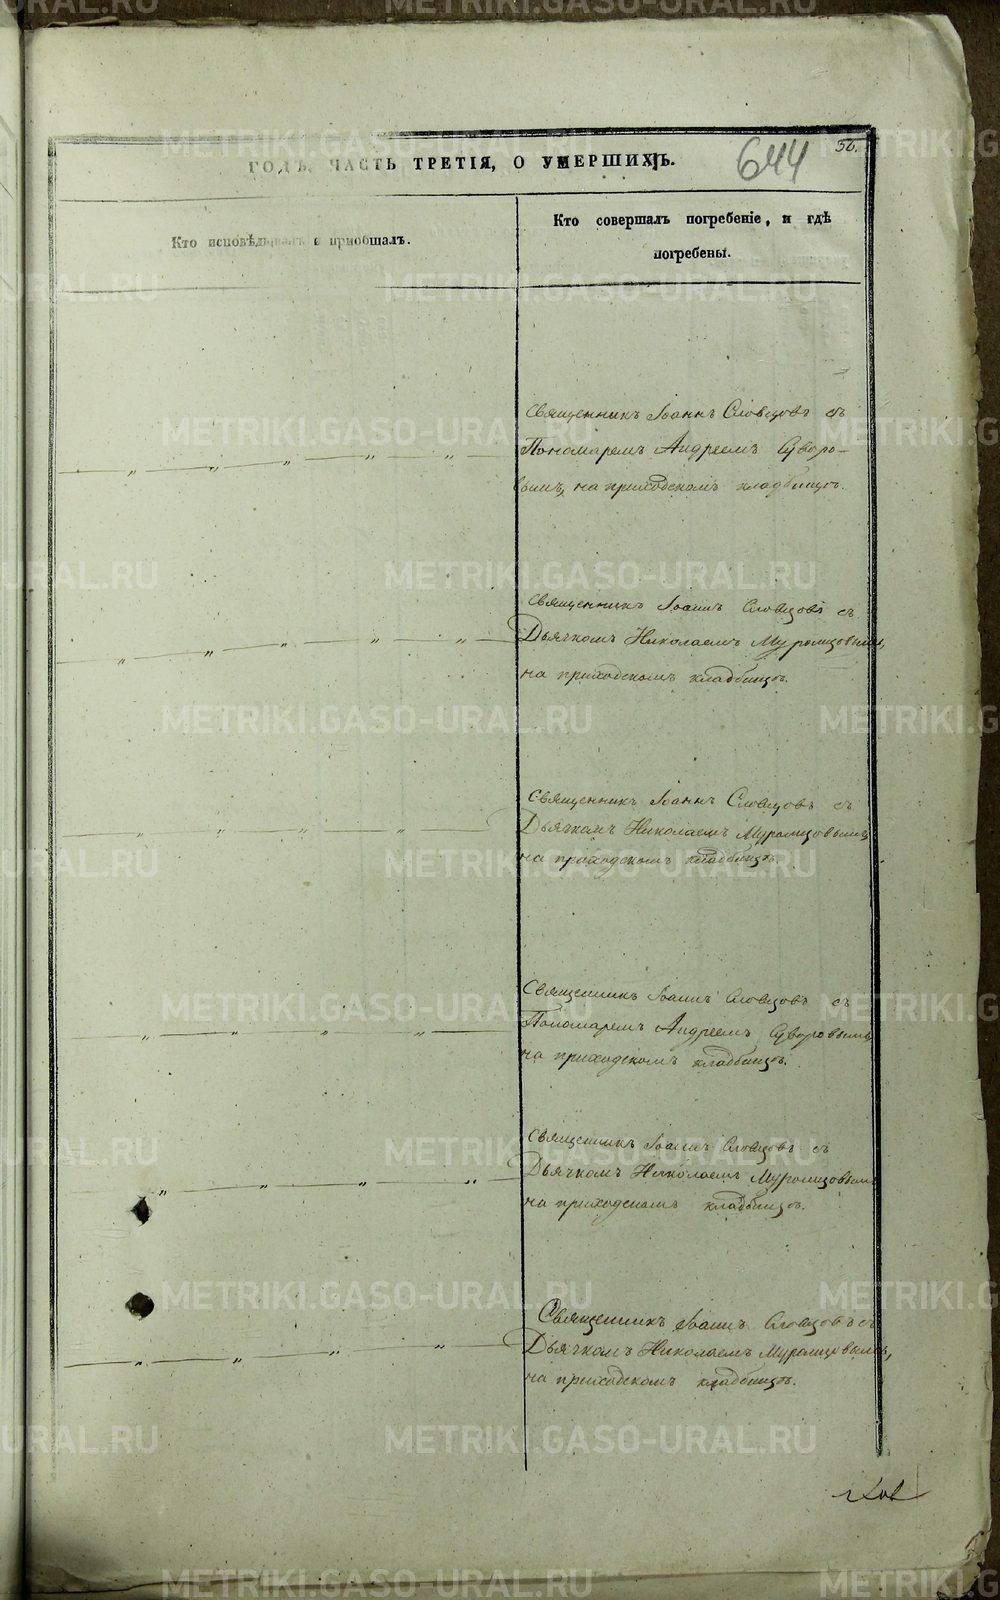 ГОДЪ, ЧАСТЬ ТРЕТІЯ, О УМЕРШИХЪ.
644
56.
Кто исповѣдывалъ и пріобщалъ.
Кто совершалъ погребеніе, и гдѣ
погребены.
Священникъ Іоаннъ Словцовъ съ
Пономаремъ Андреемъ Суворо-
вымъ, на приходскомъ кладбищѣ.
Священникъ Іоаннъ Словцовъ съ
Дьячкомъ Николаемъ Муромцовымъ,
на приходскомъ кладбищѣ.
Священникъ Іоаннъ Словцовъ съ
Дьячкомъ Николаемъ Муромцовымъ,
на приходскомъ кладбищѣ.
Священникъ Іоаннъ Словцовъ съ
Пономаремъ Андреемъ Суворовымъ,
на приходскомъ кладбищѣ.
Священникъ Іоаннъ Словцовъ съ
Дьячкомъ Николаемъ Муромцовымъ
на приходскомъ кладбищѣ.
Священникъ Іоаннъ Словцовъ съ
Дьячкомъ Николаемъ Муромцовымъ,
на приходскомъ кладбищѣ.
METRIKI.GASO-URAL.RU